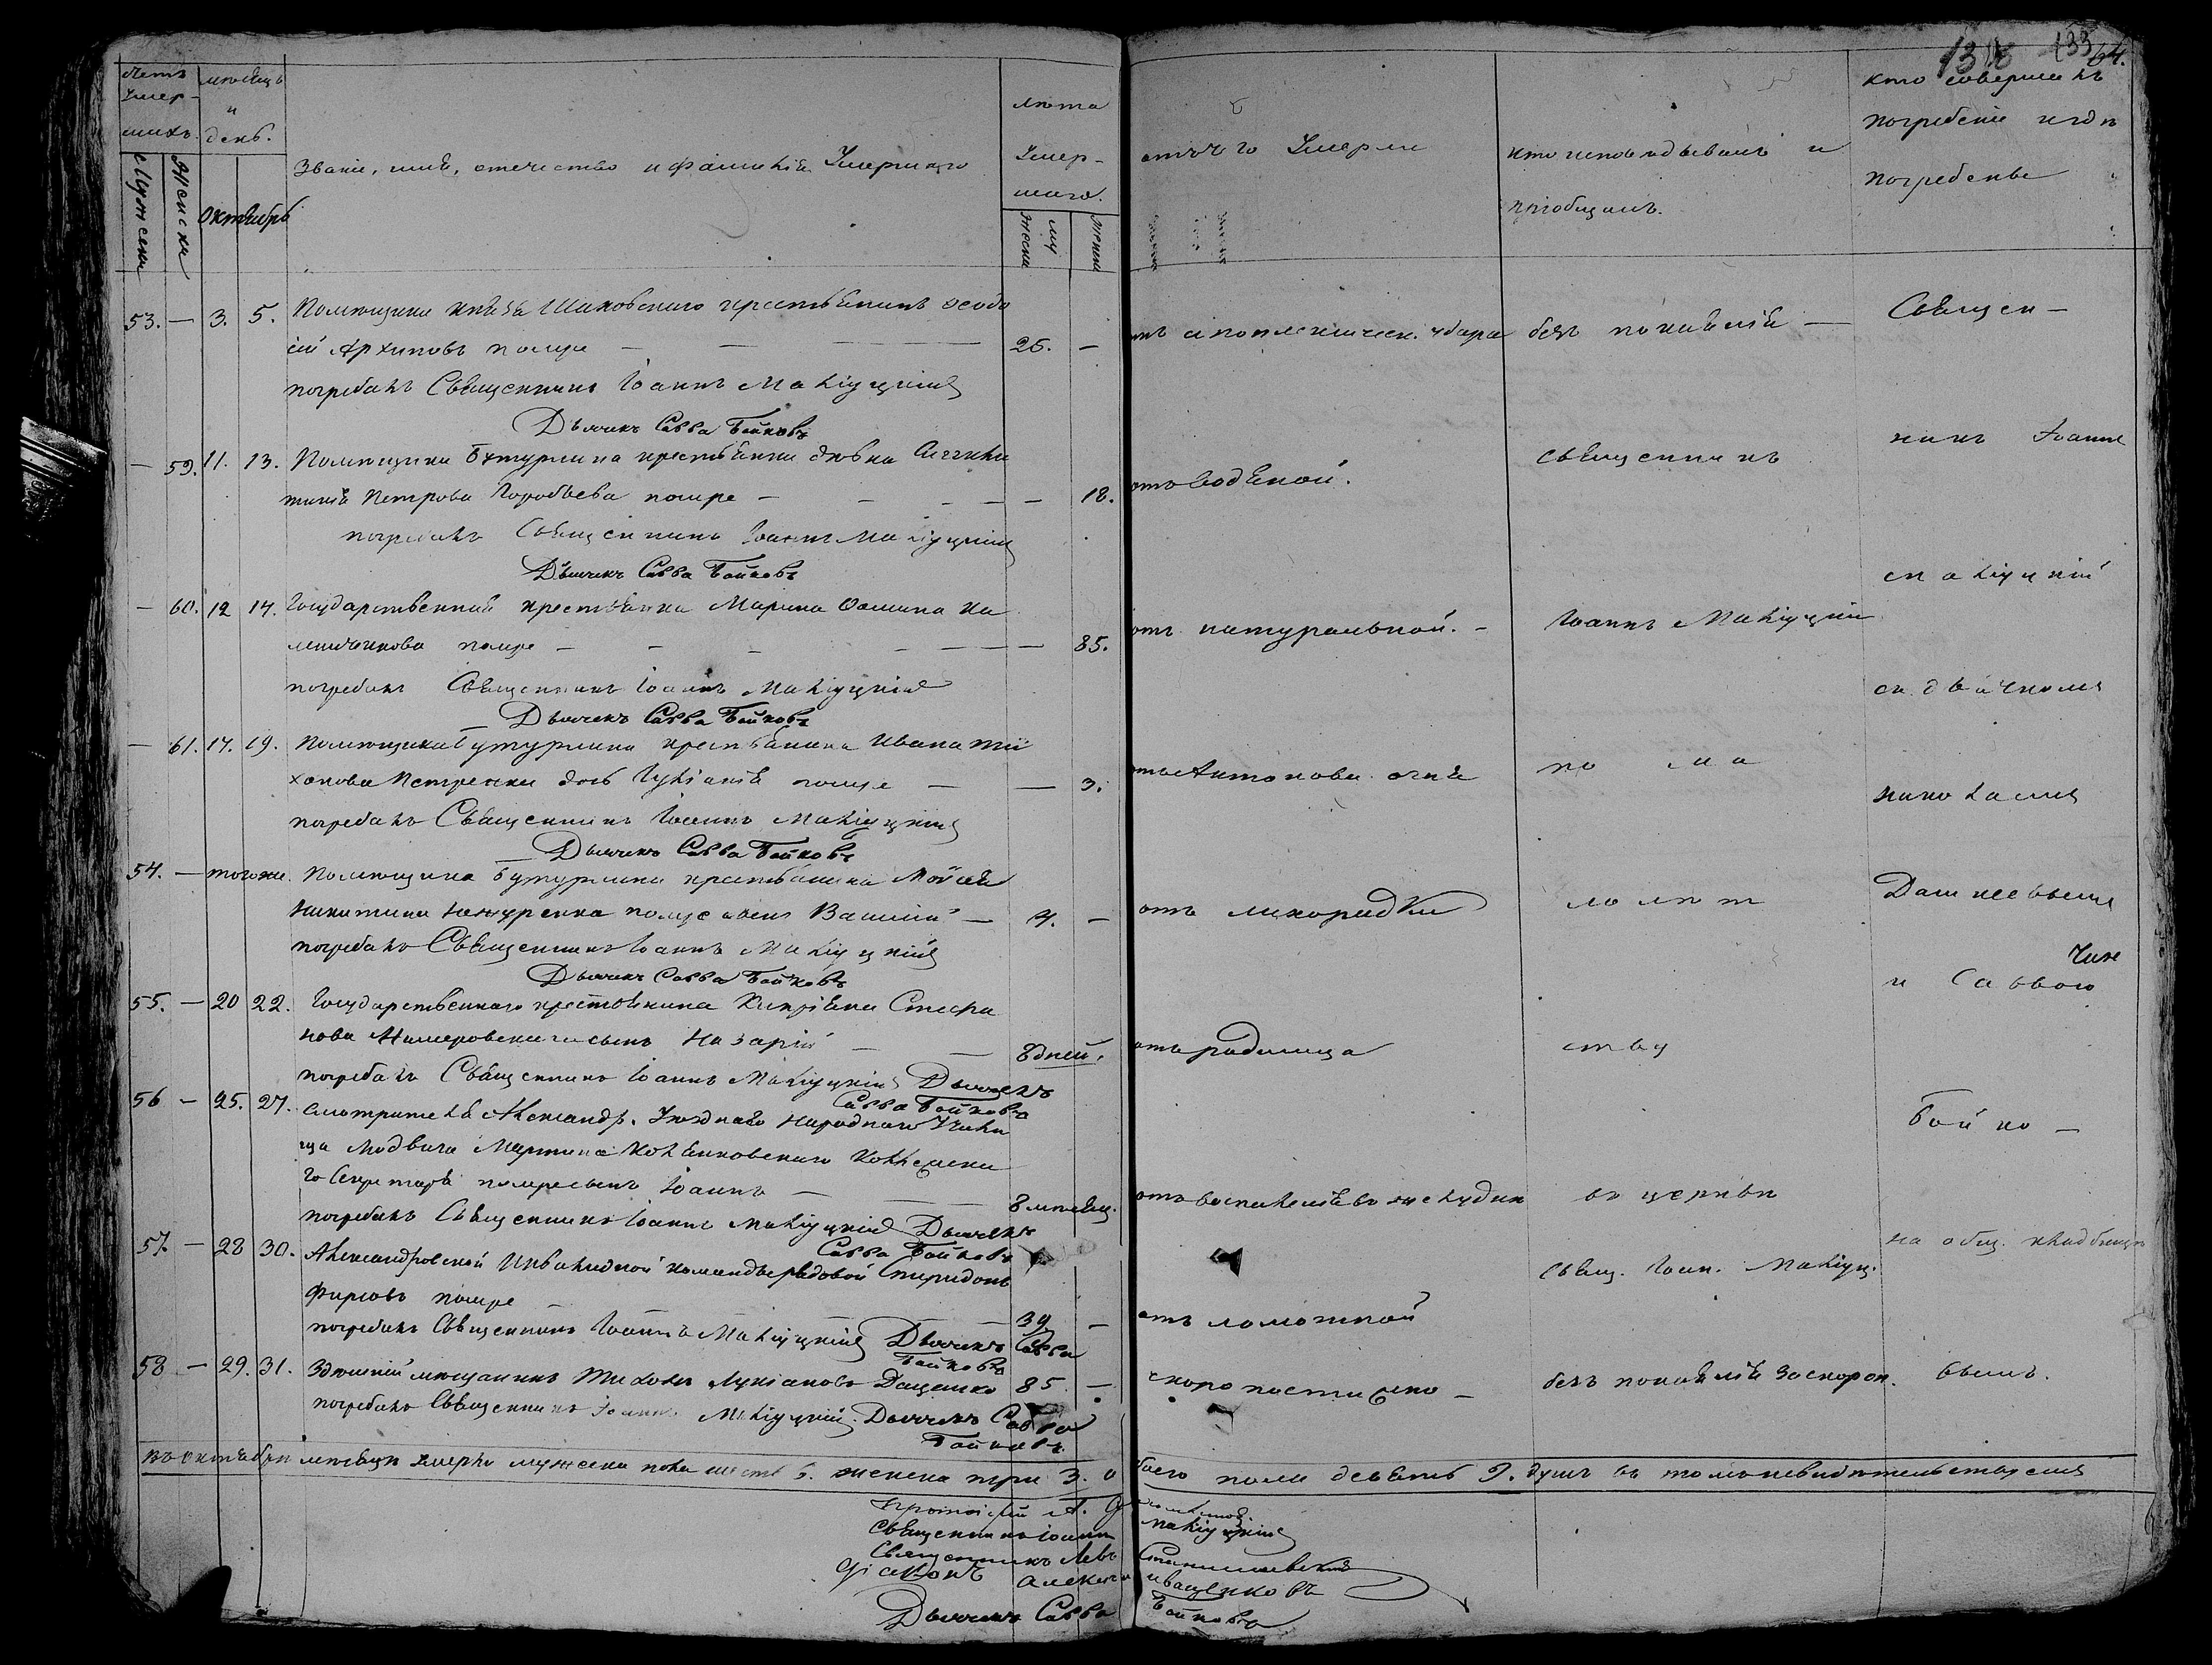 133
64.
Счетъ Умер-шихъ.
мѣсяцъ и день.
Октябрь
Мужески
Женски
Званіе, имя, отечество и фамилія Умершаго
лѣта Умер-шаго.
мужески
женски
отъ чего Умерли
кто исповѣдывалъ и пріобщалъ.
кто совершалъ погребеніе и гдѣ погребены
53. — 3. 5. Помѣщика князя Шаховского крестьянинъ Ѳеодо
сій Архиповъ помре — 26. — апоплексическ. удара безъ покаянія — Священ—
погребалъ Священникъ Іоаннъ Макіуцкій
Дьячекъ Савва Бойковъ
— 59. 11. 13. Помѣщика Бутурлина крестьянки дѣвка
Петрова Воробьева помре — — 18. отъ водяной. священникъ никъ Іоаннъ
погребалъ Священникъ Іоаннъ Макіуцкій
Дьячекъ Савва Бойковъ
— 60. 12 14. Государственная крестьянка Марина Ѳомина Ка
помре — — 85. отъ натуральной. — Іоаннъ Макіуцкій Макіуцкій
погребалъ Священникъ Іоаннъ Макіуцкій съ дьячкомъ
Дьячекъ Савва Бойковъ
— 61. 17. 19. Помѣщика Бутурлина крестьянина Ивана Ти
хонова Петренки дочь Лукіанія помре — — 3. отъ Антонова огня по ма
погребалъ Священникъ Іоаннъ Макіуцкій
Дьячекъ Савва Бойковъ
54. — того же. Помѣщика Бутурлина крестьянина Моисея
Никитина помре сынъ Василій — 4. — отъ лихорадки лолѣт
погребалъ Священникъ Іоаннъ Макіуцкій
Дьячекъ Савва Бойковъ
и Саввою
55. — 20 22. Государственнаго крестьянина Кипріяна Стефа
нова сынъ Назарій — — 8 дней. отъ родимца ству
погребалъ Священникъ Іоаннъ Макіуцкій Дьячекъ
Савва Бойковъ
56 — 25. 27. Смотрителя Александр. Уѣзднаго Народнаго Учили
ща Мартина Коллежска
го Секретаря помре сынъ Іоаннъ — 8 мѣсяц. отъ воспаленія въ желудкѣ въ церкви
погребалъ Священникъ Іоаннъ Макіуцкій Дьячекъ
Савва Бойковъ
Бойко—
на общ. кладбищѣ
57. — 28 30. Александровской Инвалидной команды рядовой Спиридонъ
Фирсовъ помре — 39 — отъ ломотной свящ. Іоан. Макіуц.
погребалъ Священникъ Іоаннъ Макіуцкій Дьячекъ Савва
Бойковъ
58 — 29. 31. Здѣшній мѣщанинъ Тихонъ Лукіановъ Даценко 85 — скоропостижно — безъ покаянія за скороп.
погребалъ Священникъ Іоаннъ Макіуцкій. Дьячекъ Савва
Бойковъ.
въ октябрѣ мѣсяцѣ умерло мужеска пола шесть 6. женска три 3. обоего пола девять 9. душъ въ томъ и свидѣтельствуемъ
Протоіерей А.
Священникъ Іоаннъ Макіуцкій
Священникъ Левъ Станиславскій
Діаконъ Алексѣй Иващенковъ
Дьячекъ Савва Бойковъ